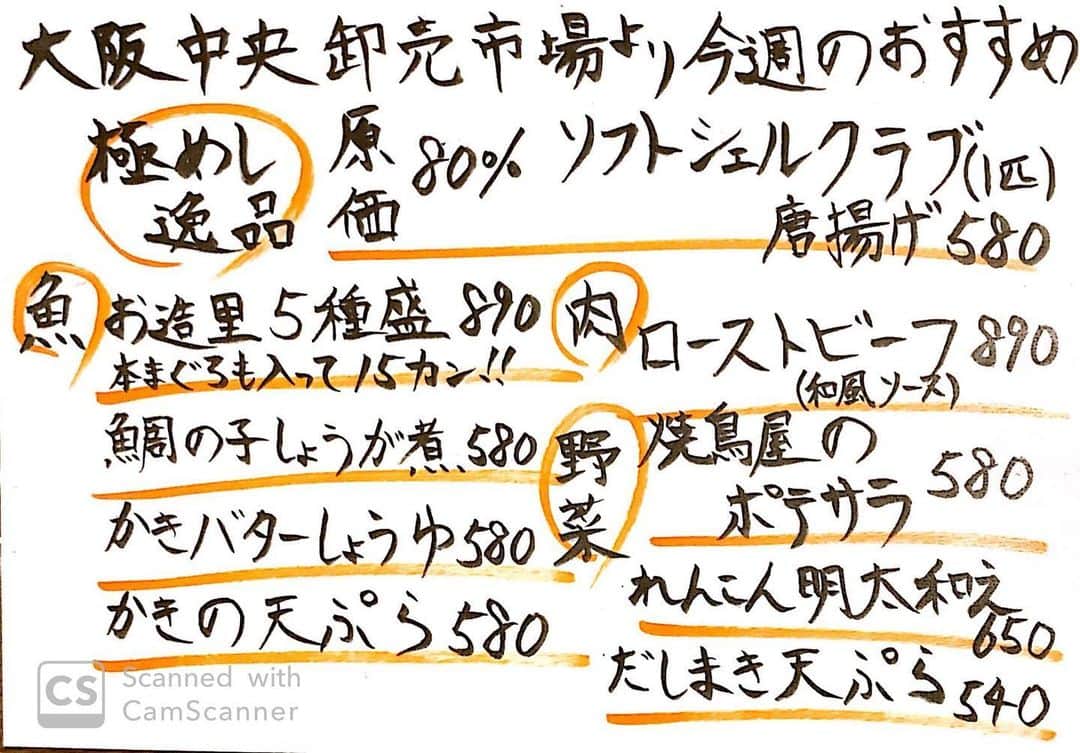 大阪中央卸売市場より今週のおすすめ
極めし
逸品
原価80%
ソフトシェルクラブ(1匹)
唐揚げ580
魚
お造里5種盛890
本まぐろも入って15カン!!
鯛の子しょうが煮580
かきバターしょうゆ580
かきの天ぷら580
肉
ローストビーフ890
(和風ソース)
野菜
焼鳥屋の
ポテサラ580
れんこん明太和え
650
だしまき天ぷら540
CS
Scanned with
CamScanner